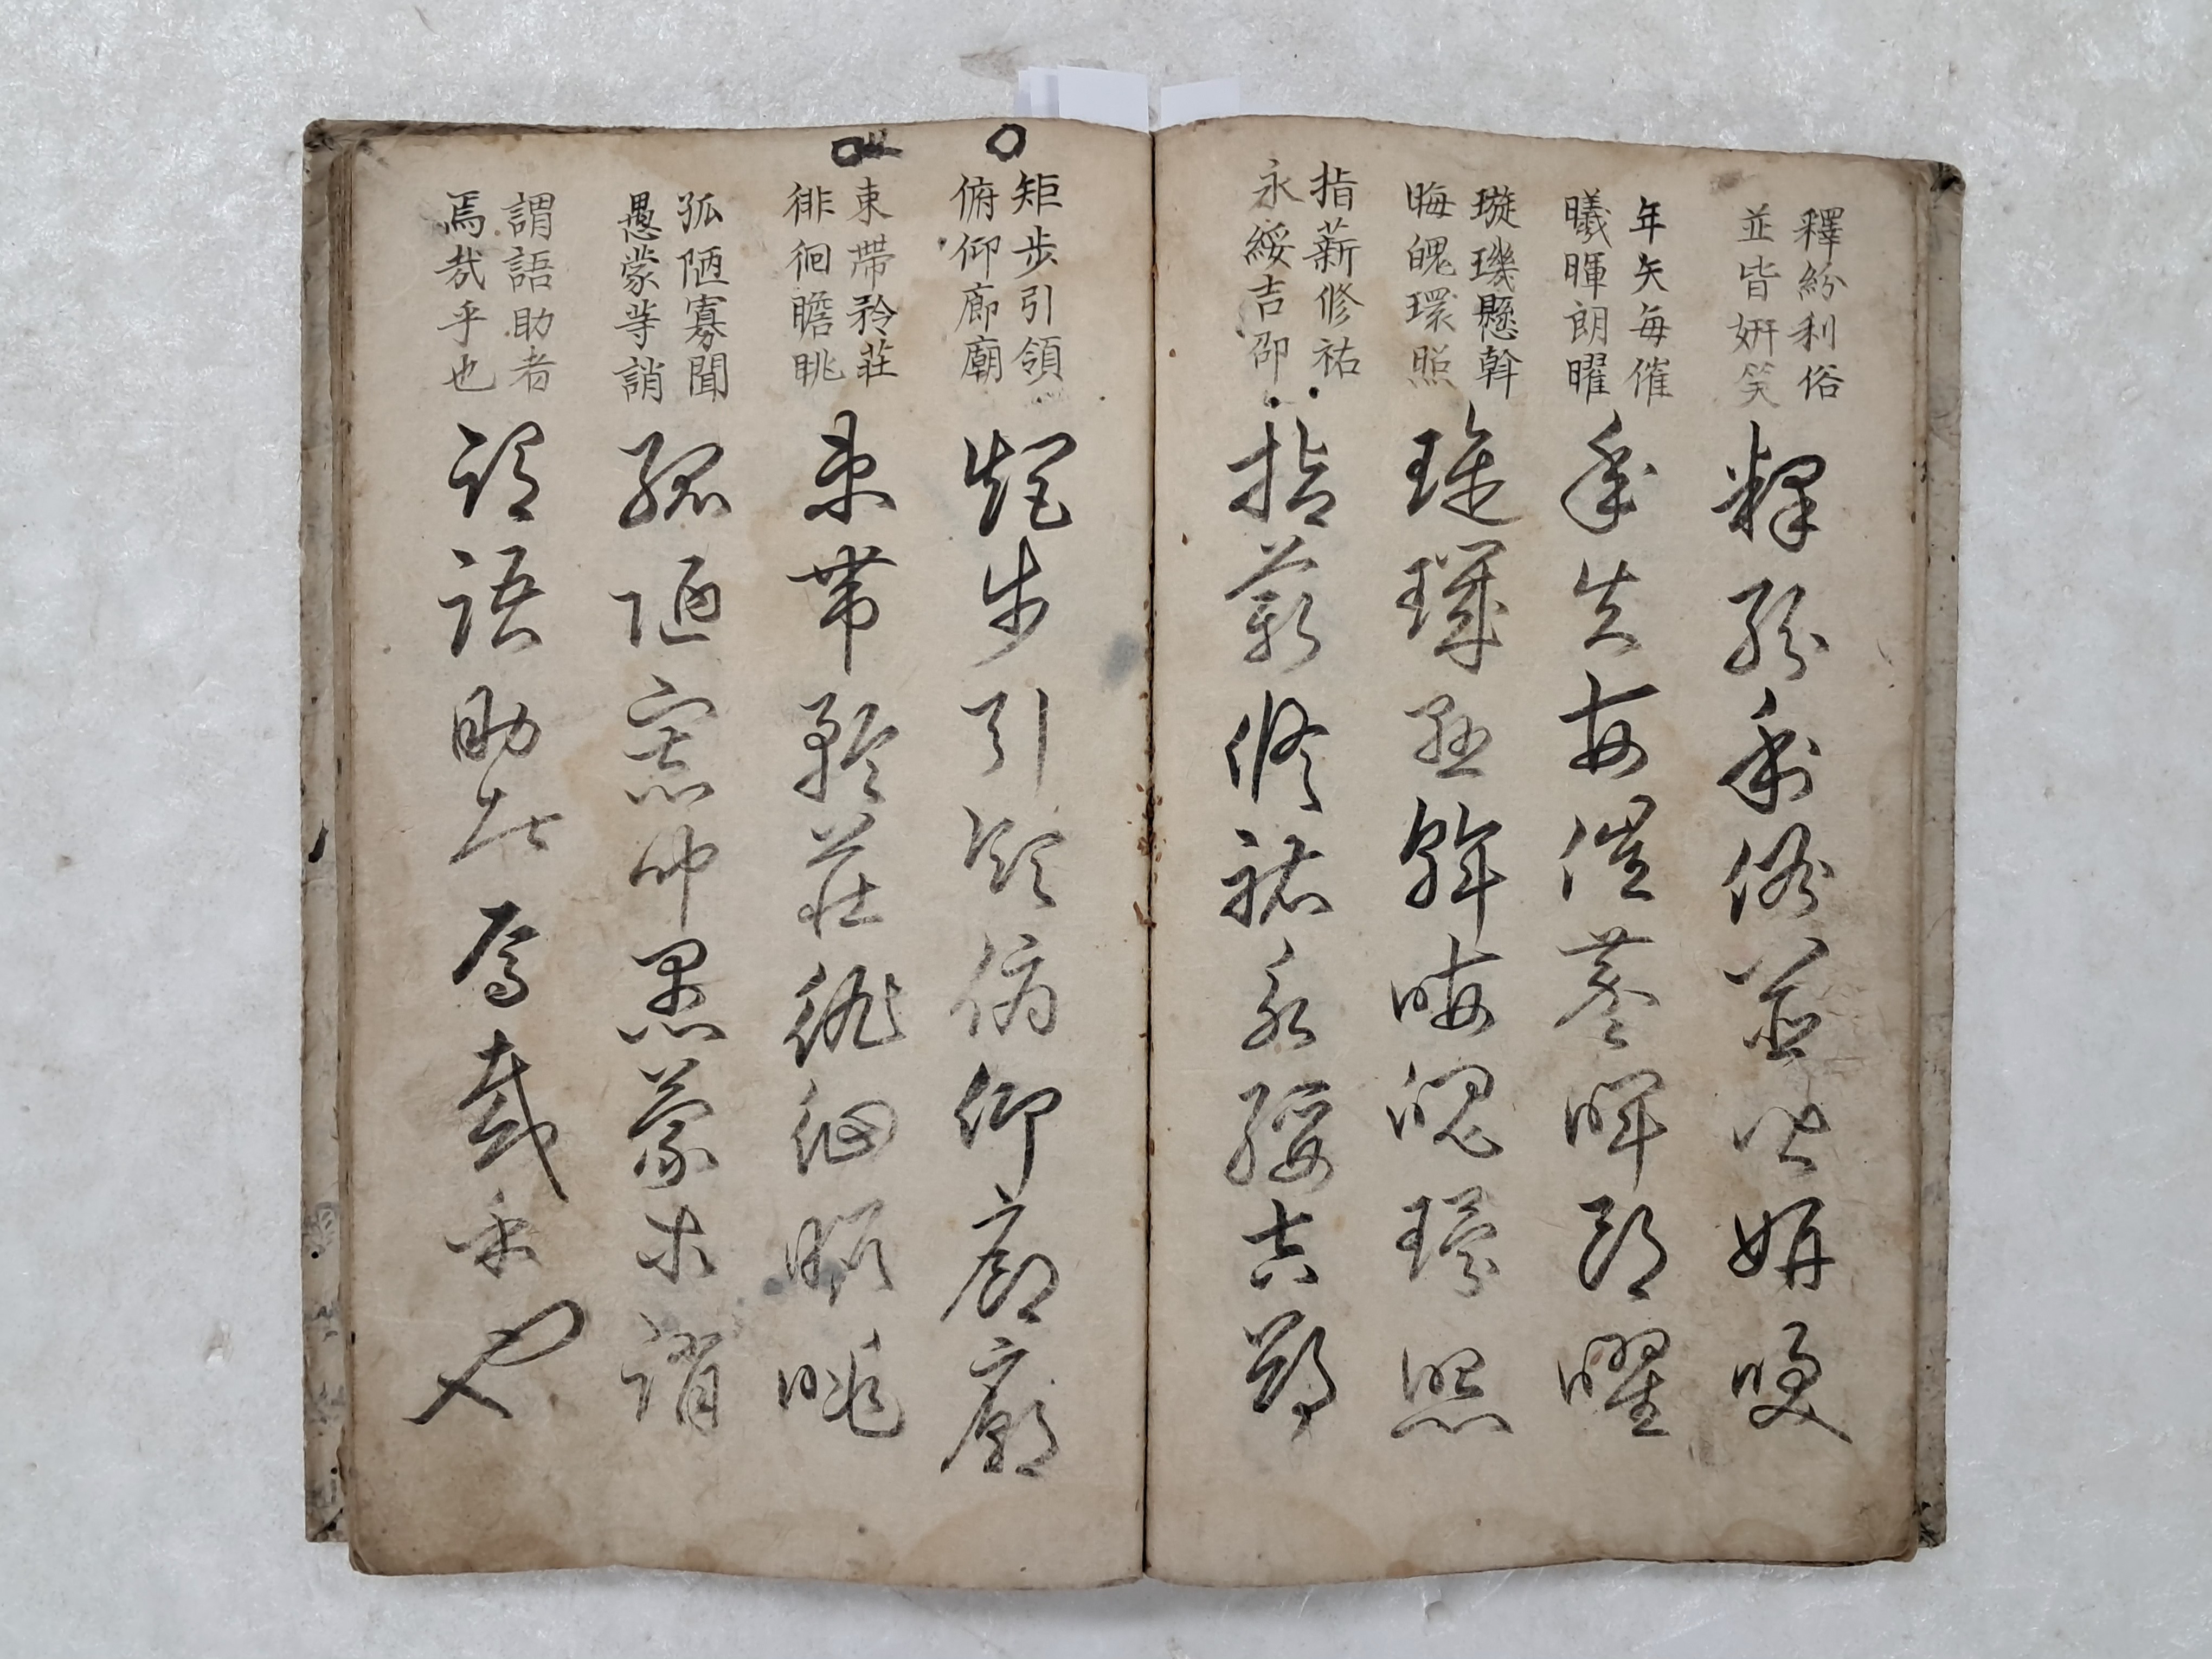 釋紛利俗
並皆妍笑
釋紛利俗並皆妍咲
年矢每催
曦暉朗曜
年矢每催羲暉朗曜
璇璣懸斡
晦魄環照
璇璣懸斡晦魄環照
指薪修祐
永綏吉卲
指薪修祐永綏吉邵
矩步引領
俯仰廊廟
矩步引領俯仰廊廟
束帶矜莊
徘徊瞻眺
束帶矜莊徘徊瞻眺
孤陋寡聞
愚蒙等誚
孤陋寡聞愚蒙等誚
謂語助者
焉哉乎也
謂語助者焉哉乎也